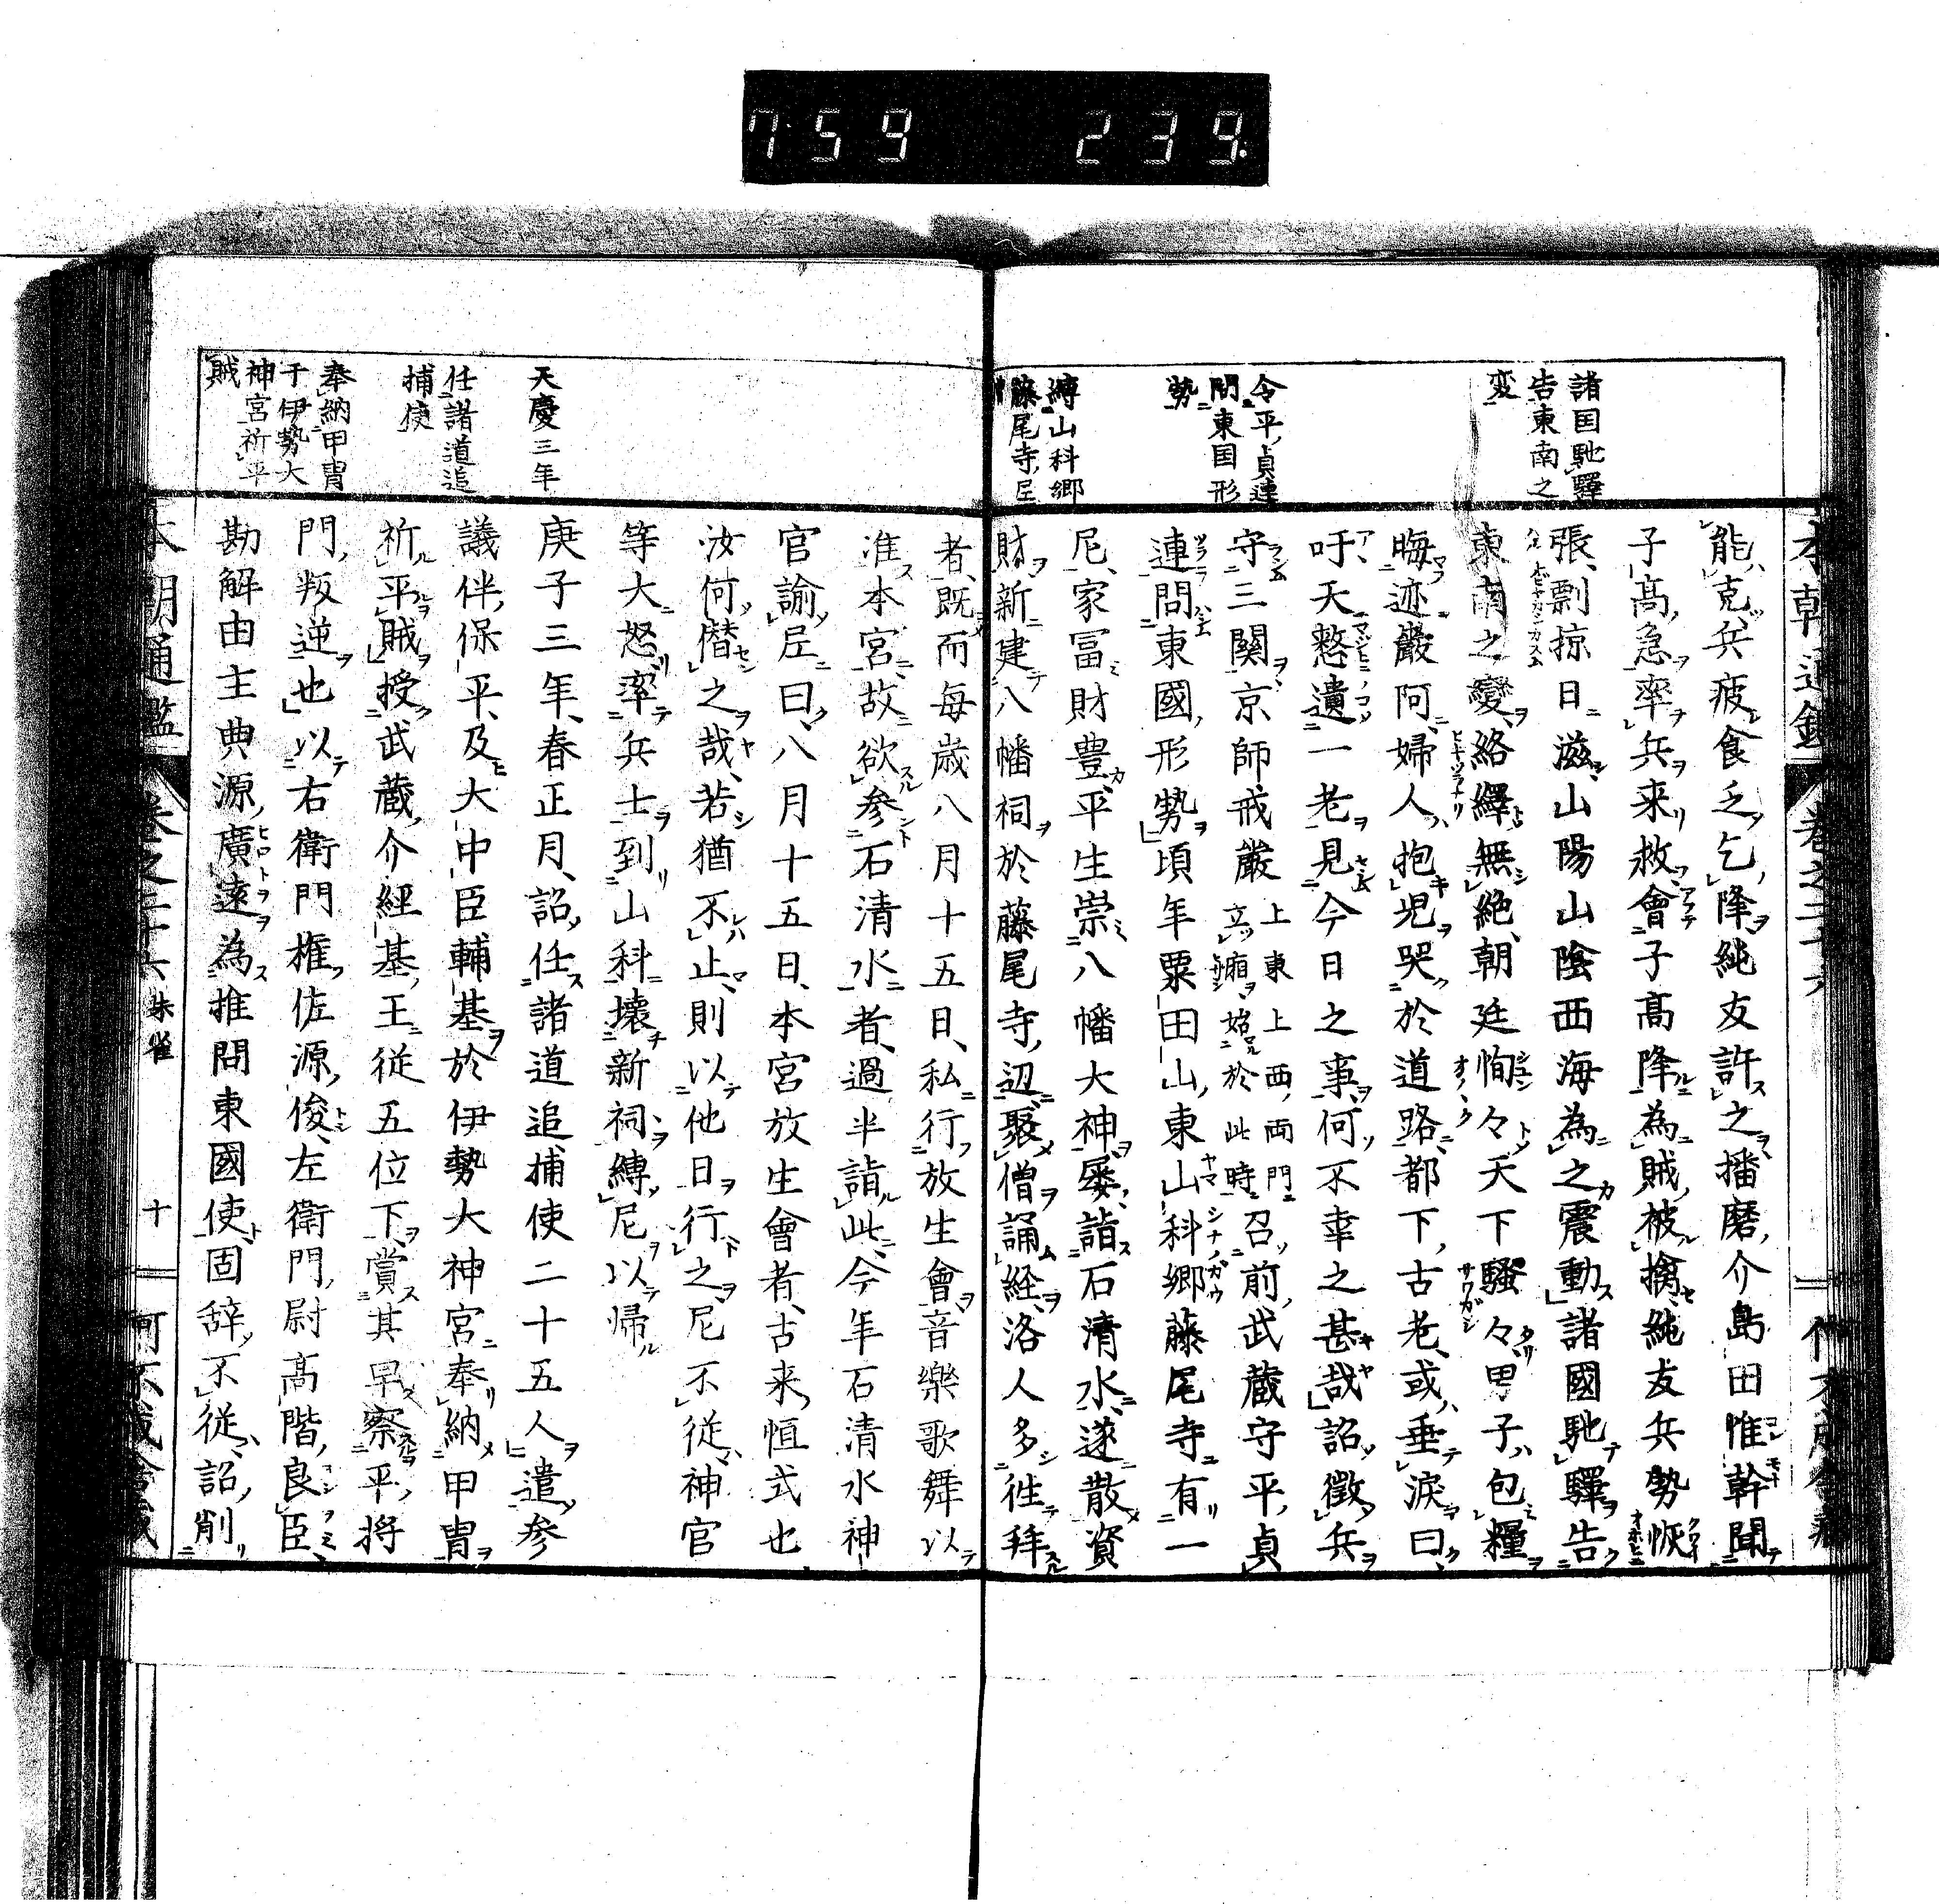 759 239.
諸国馳驛
告東南之
変
令平貞連
問東国形
勢
縛山科郷
藤尾寺尼
能克兵疲食乏乞降純友許之播磨介島田惟幹聞
子高急率兵来救會子高降為賊被擒純友兵勢恢
張剽掠日滋山陽山陰西海為之震動諸國馳驛告
東南之變絡繹無絶朝廷恟々天下騒々男子包糧
晦迹巌阿婦人抱児哭於道路都下古老或垂涙曰
吁天憗遺一老見今日之事何不幸之甚哉詔徴兵
守三關京師戒嚴上東上西両門立廂始於此時召前武蔵守平貞
連問東國形勢頃年粟田山東山科郷藤尾寺有一
尼家冨財豊平生崇八幡大神屡詣石清水遂散資
財新建八幡祠於藤尾寺辺聚僧誦経洛人多往拜
天慶三年
任諸道追
捕使
奉納甲冑
于伊勢大
神宮祈平
賊
者既而毎歳八月十五日私行放生會音樂歌舞以
准本宮故欲参石清水者過半詣此今年石清水神
官諭尼曰八月十五日本宮放生會者古来恒式也
汝何僭之哉若猶不止則以他日行之尼不従神官
等大怒率兵士到山科壊新祠縛尼以帰
庚子三年春正月詔任諸道追捕使二十五人遣参
議伴保平及大中臣輔基於伊勢大神宮奉納甲冑
祈平賊授武蔵介經基王従五位下賞其早察平将
門叛逆也以右衛門権佐源俊左衛門尉高階良臣
勘解由主典源廣遠為推問東國使固辞不従詔削
本朝通鑑 巻之二十六 朱雀 十